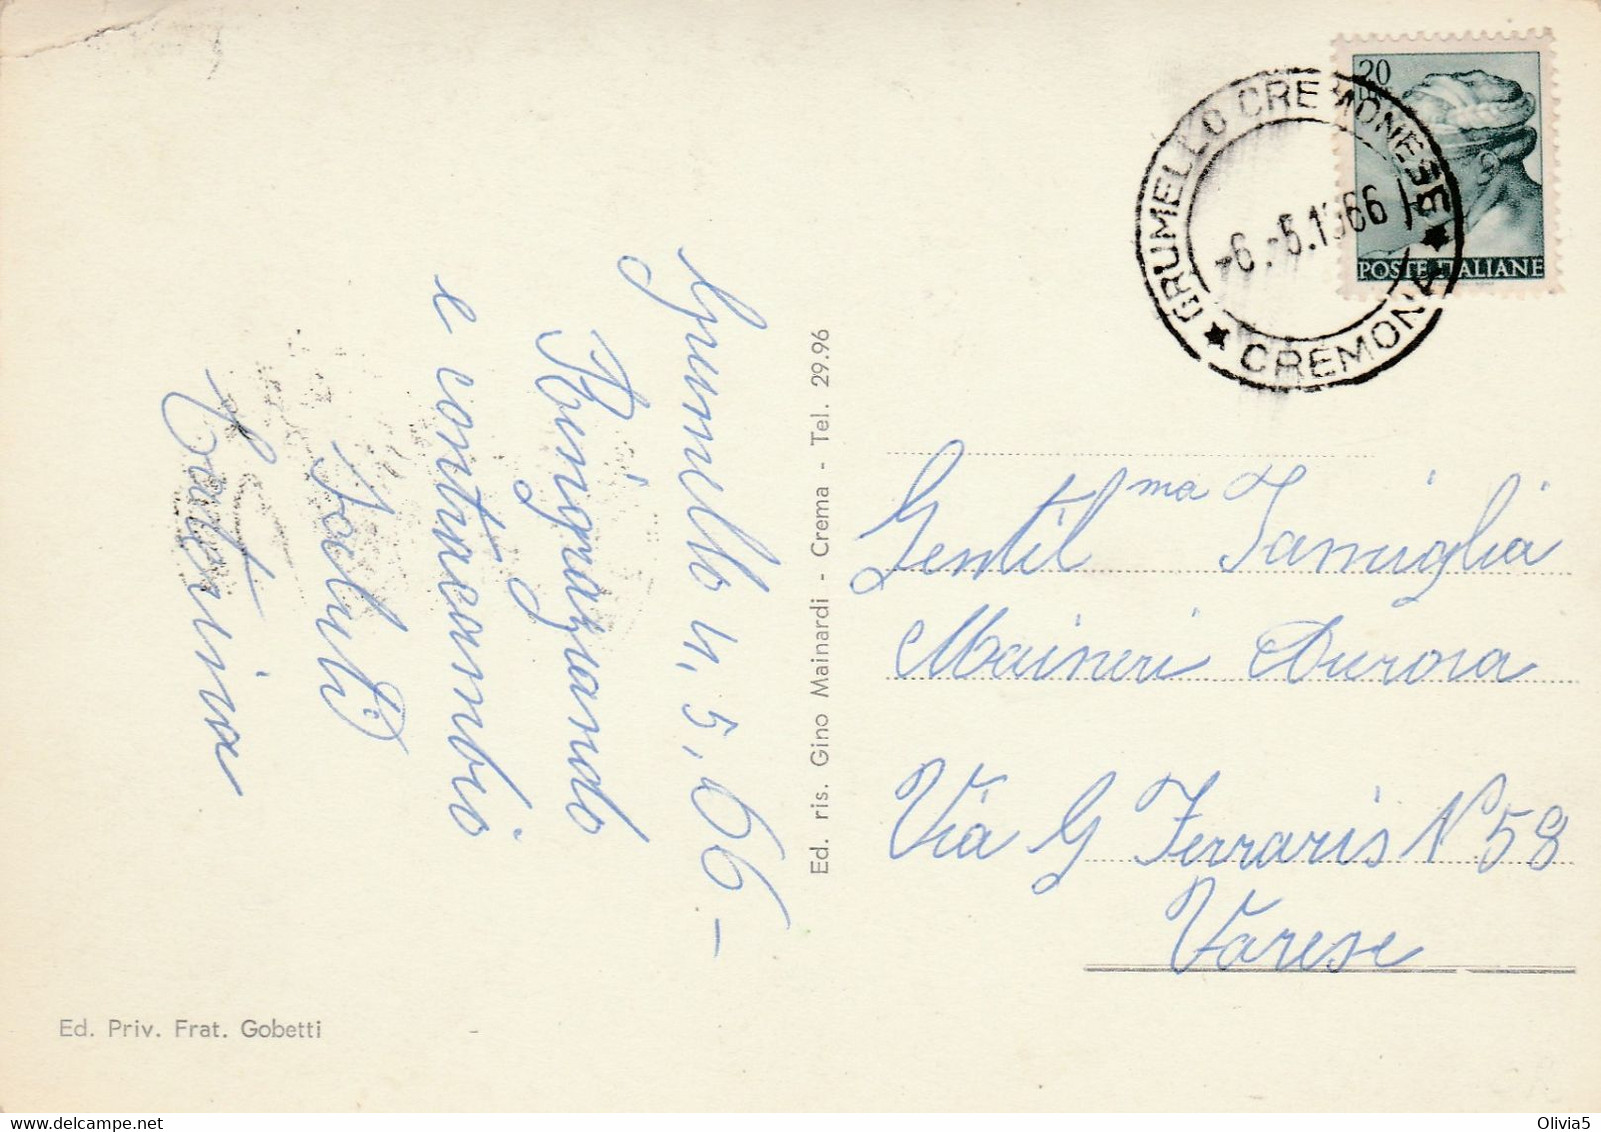 Grumello 4, 5, 66 -
Ringraziando
e contracambio
Saluti
Caterina
Ed. ris. Gino Mainardi - Crema - Tel. 29.96
Ed. Priv. Frat. Gobetti
20
LIRE
POSTE ITALIANE
GRUMELLO CREMONESE
-6.-5.1966
★ CREMONA ★
Gentilma Famiglia
Maineri Aurora
Via G Ferraris N 58
Varese
Olivia5